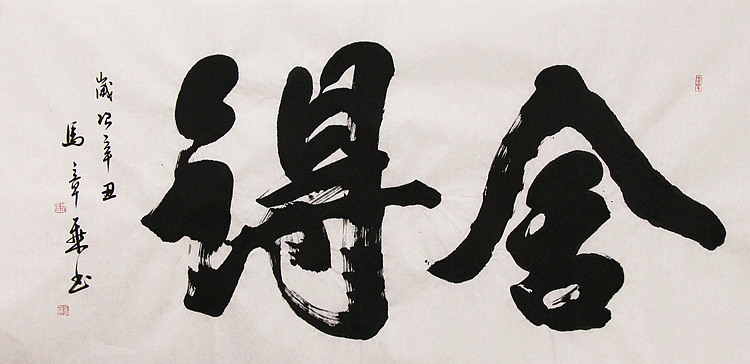 舍得
歲次辛丑
馬章乘书